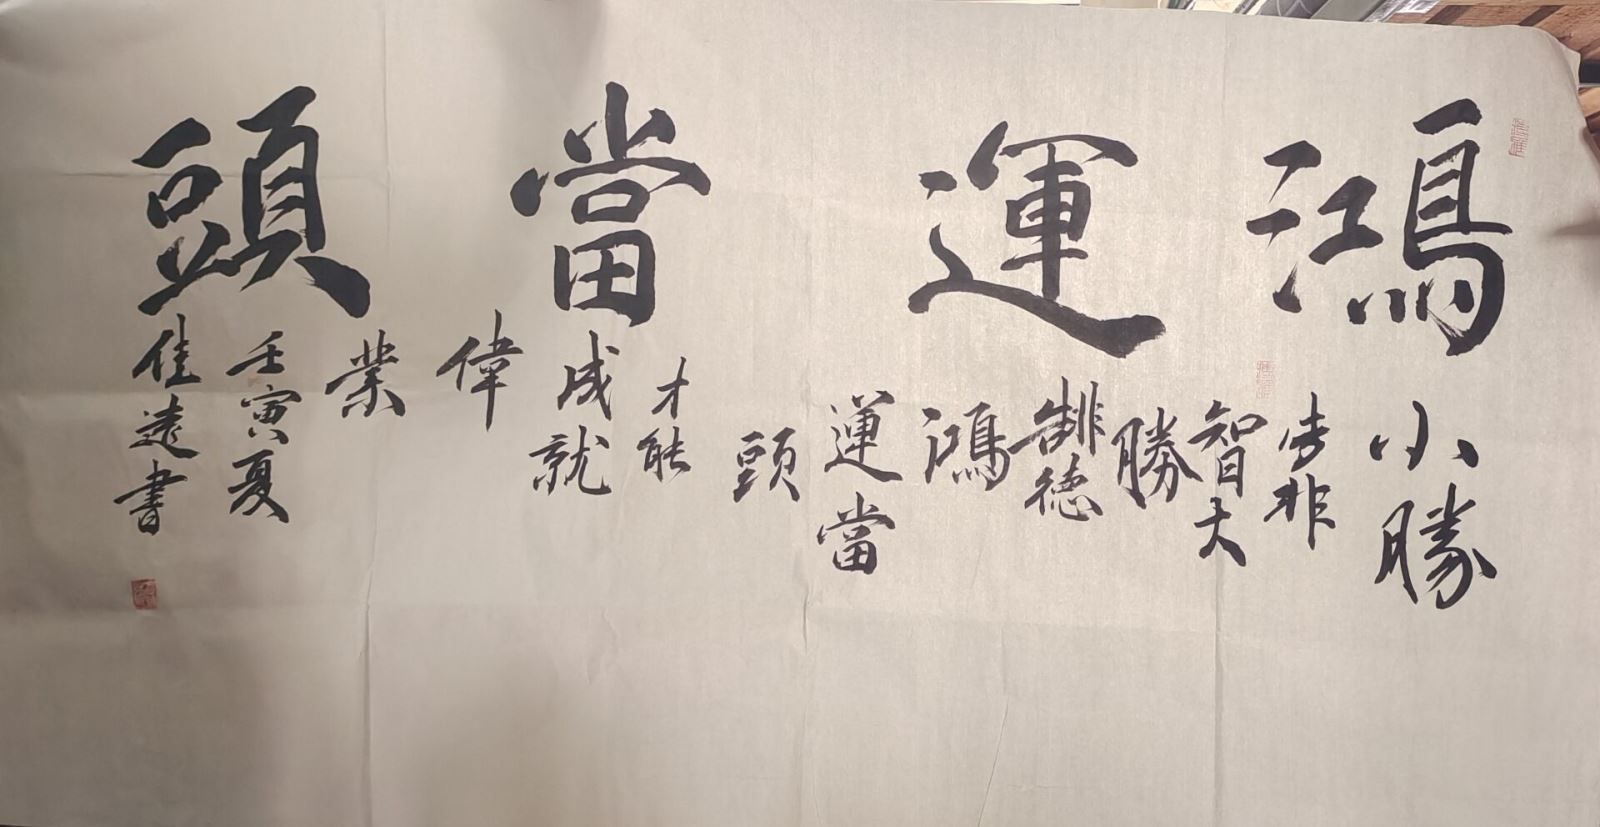 鴻運當頭
小勝
靠
智大
勝
靠德
鴻
運當
頭
才能
成就
偉
業
壬寅夏
佳遠書